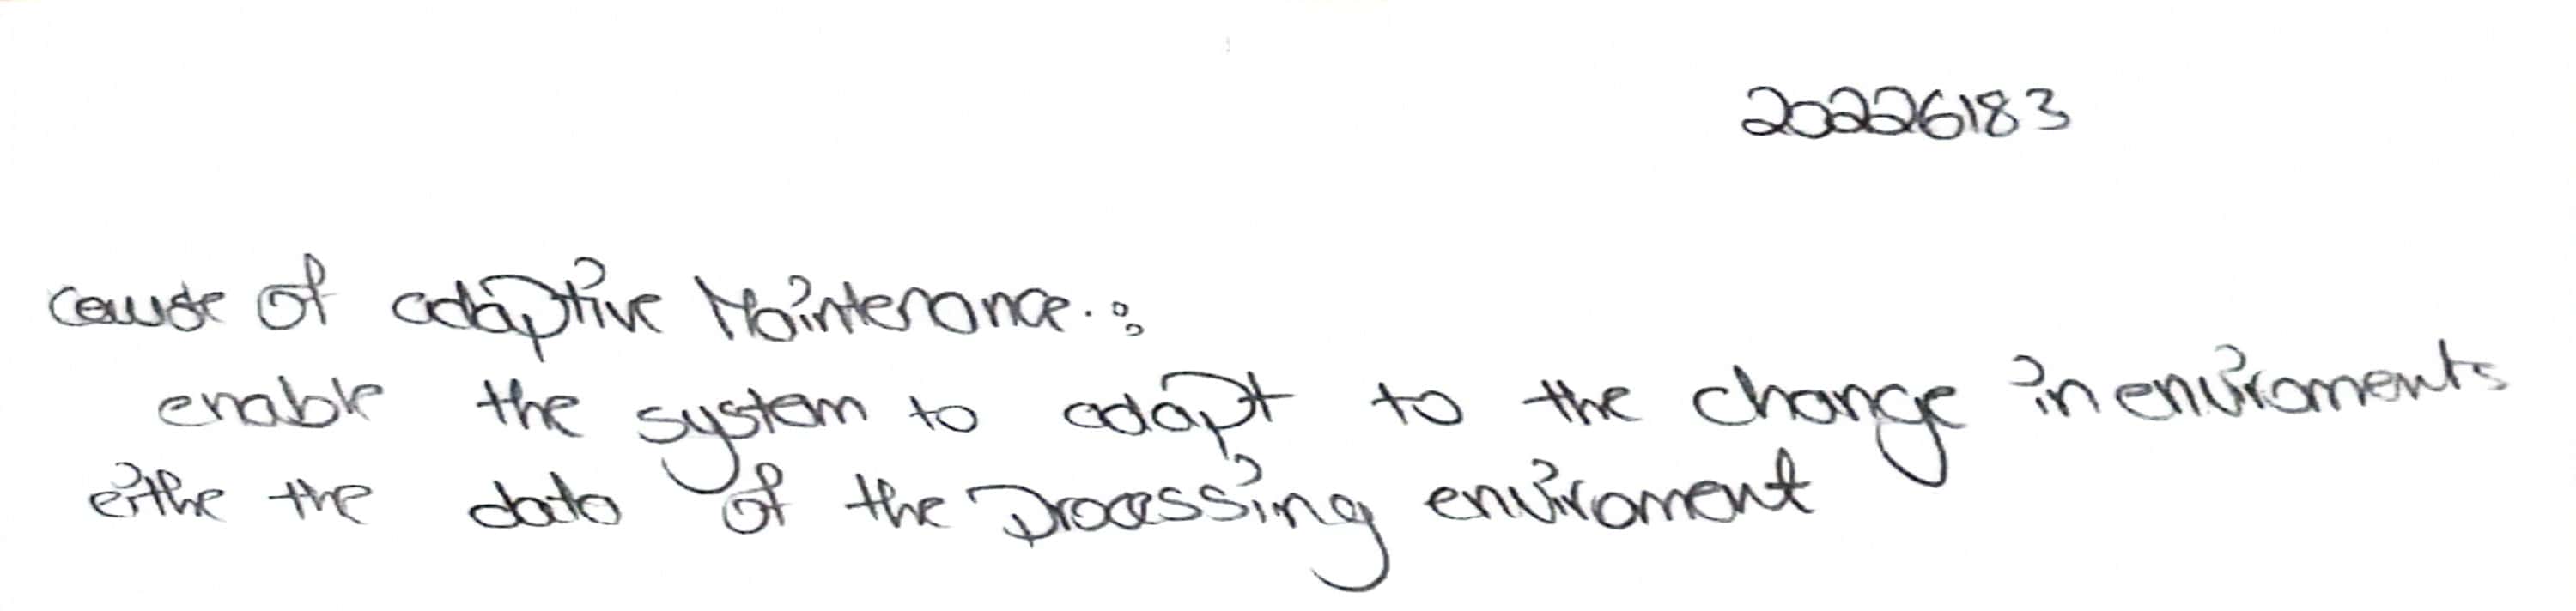 20226183
cause of adaptive Maintenance.:
enable the system to adapt to the change in enviroments
eithe the data of the processing enviroment